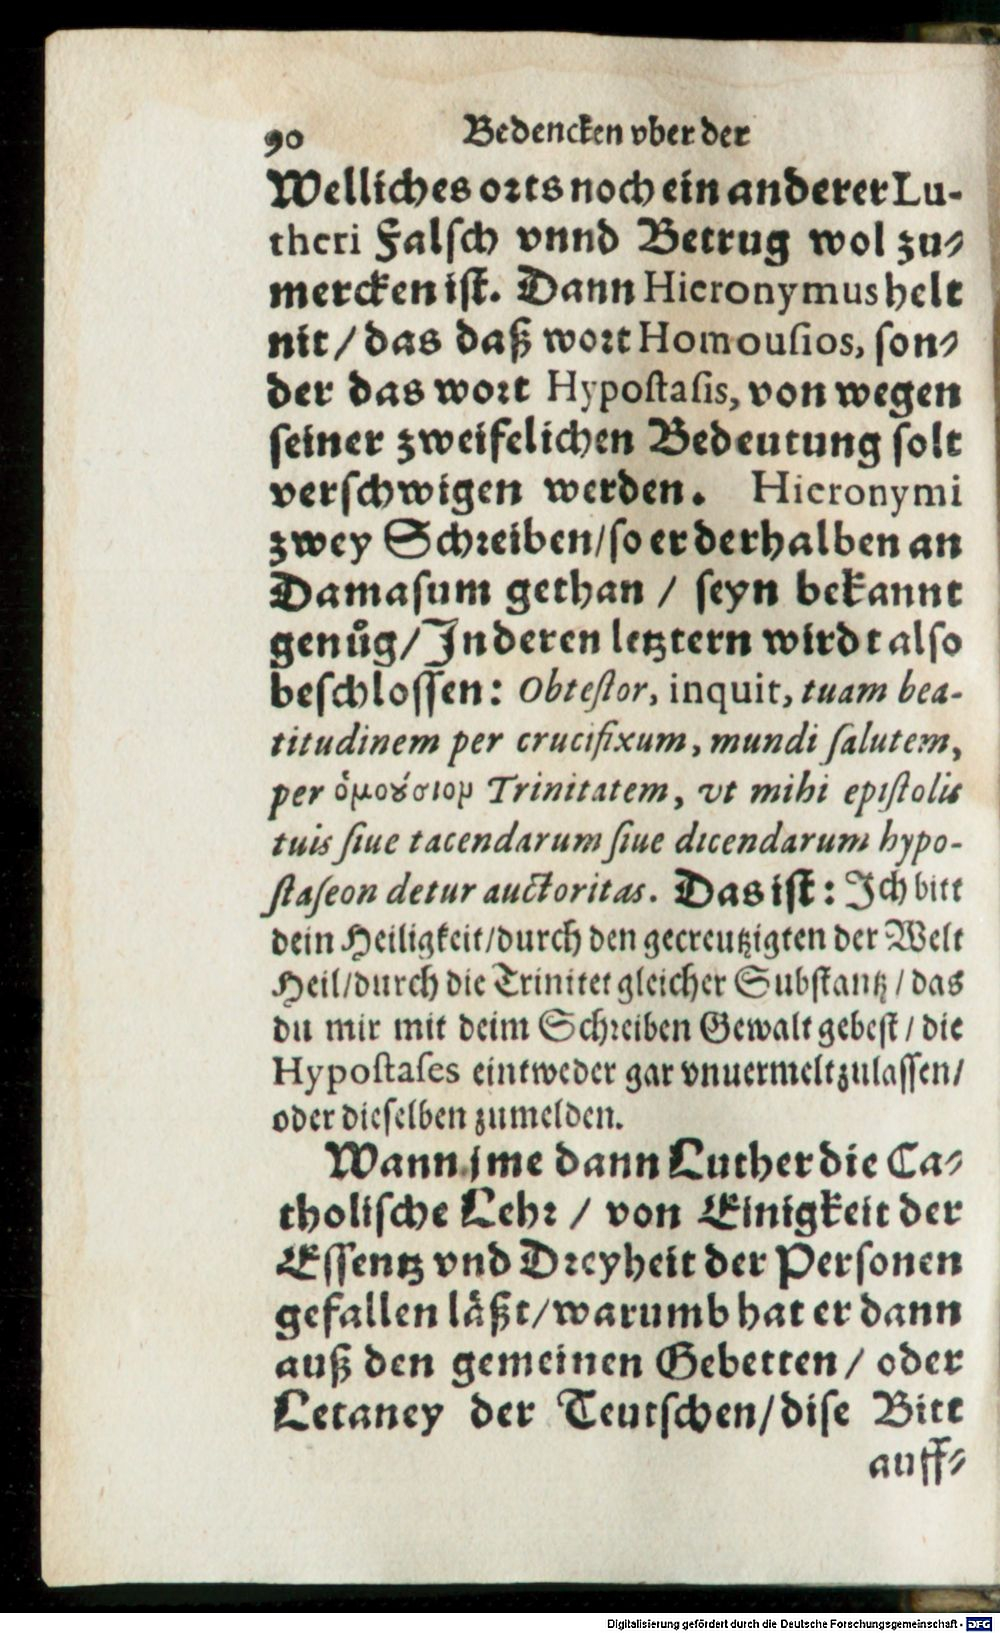 90 Bedencken vber der
Welliches orts noch ein anderer Lu-
theri Falsch vnnd Betrug wol zu-
mercken ist. Dann Hieronymus helt
nit / das daß wort Homousios, son-
der das wort Hypostasis, von wegen
seiner zweifelichen Bedeutung solt
verschwigen werden. Hieronymi
zwey Schreiben/so er derhalben an
Damasum gethan / seyn bekannt
genůg/Jn deren letztern wirdt also
beschlossen: Obtestor, inquit, tuam bea-
titudinem per crucifixum, mundi salutem,
per ὁμούσιομ Trinitatem, vt mihi epistolis
tuis siue tacendarum siue dicendarum hypo-
staseon detur auctoritas. Das ist: Jch bitt
dein Heiligkeit/durch den gecreutzigten der Welt
Heil/durch die Trinitet gleicher Substantz / das
du mir mit deim Schreiben Gewalt gebest / die
Hypostases eintweder gar vnuermelt zulassen/
oder dieselben zumelden.
Wann jme dann Luther die Ca-
tholische Lehr / von Einigkeit der
Essentz vnd Dreyheit der Personen
gefallen låßt/warumb hat er dann
auß den gemeinen Gebetten / oder
Letaney der Teutschen/dise Bitt
auff-
Digitalisierung gefördert durch die Deutsche Forschungsgemeinschaft - DFG